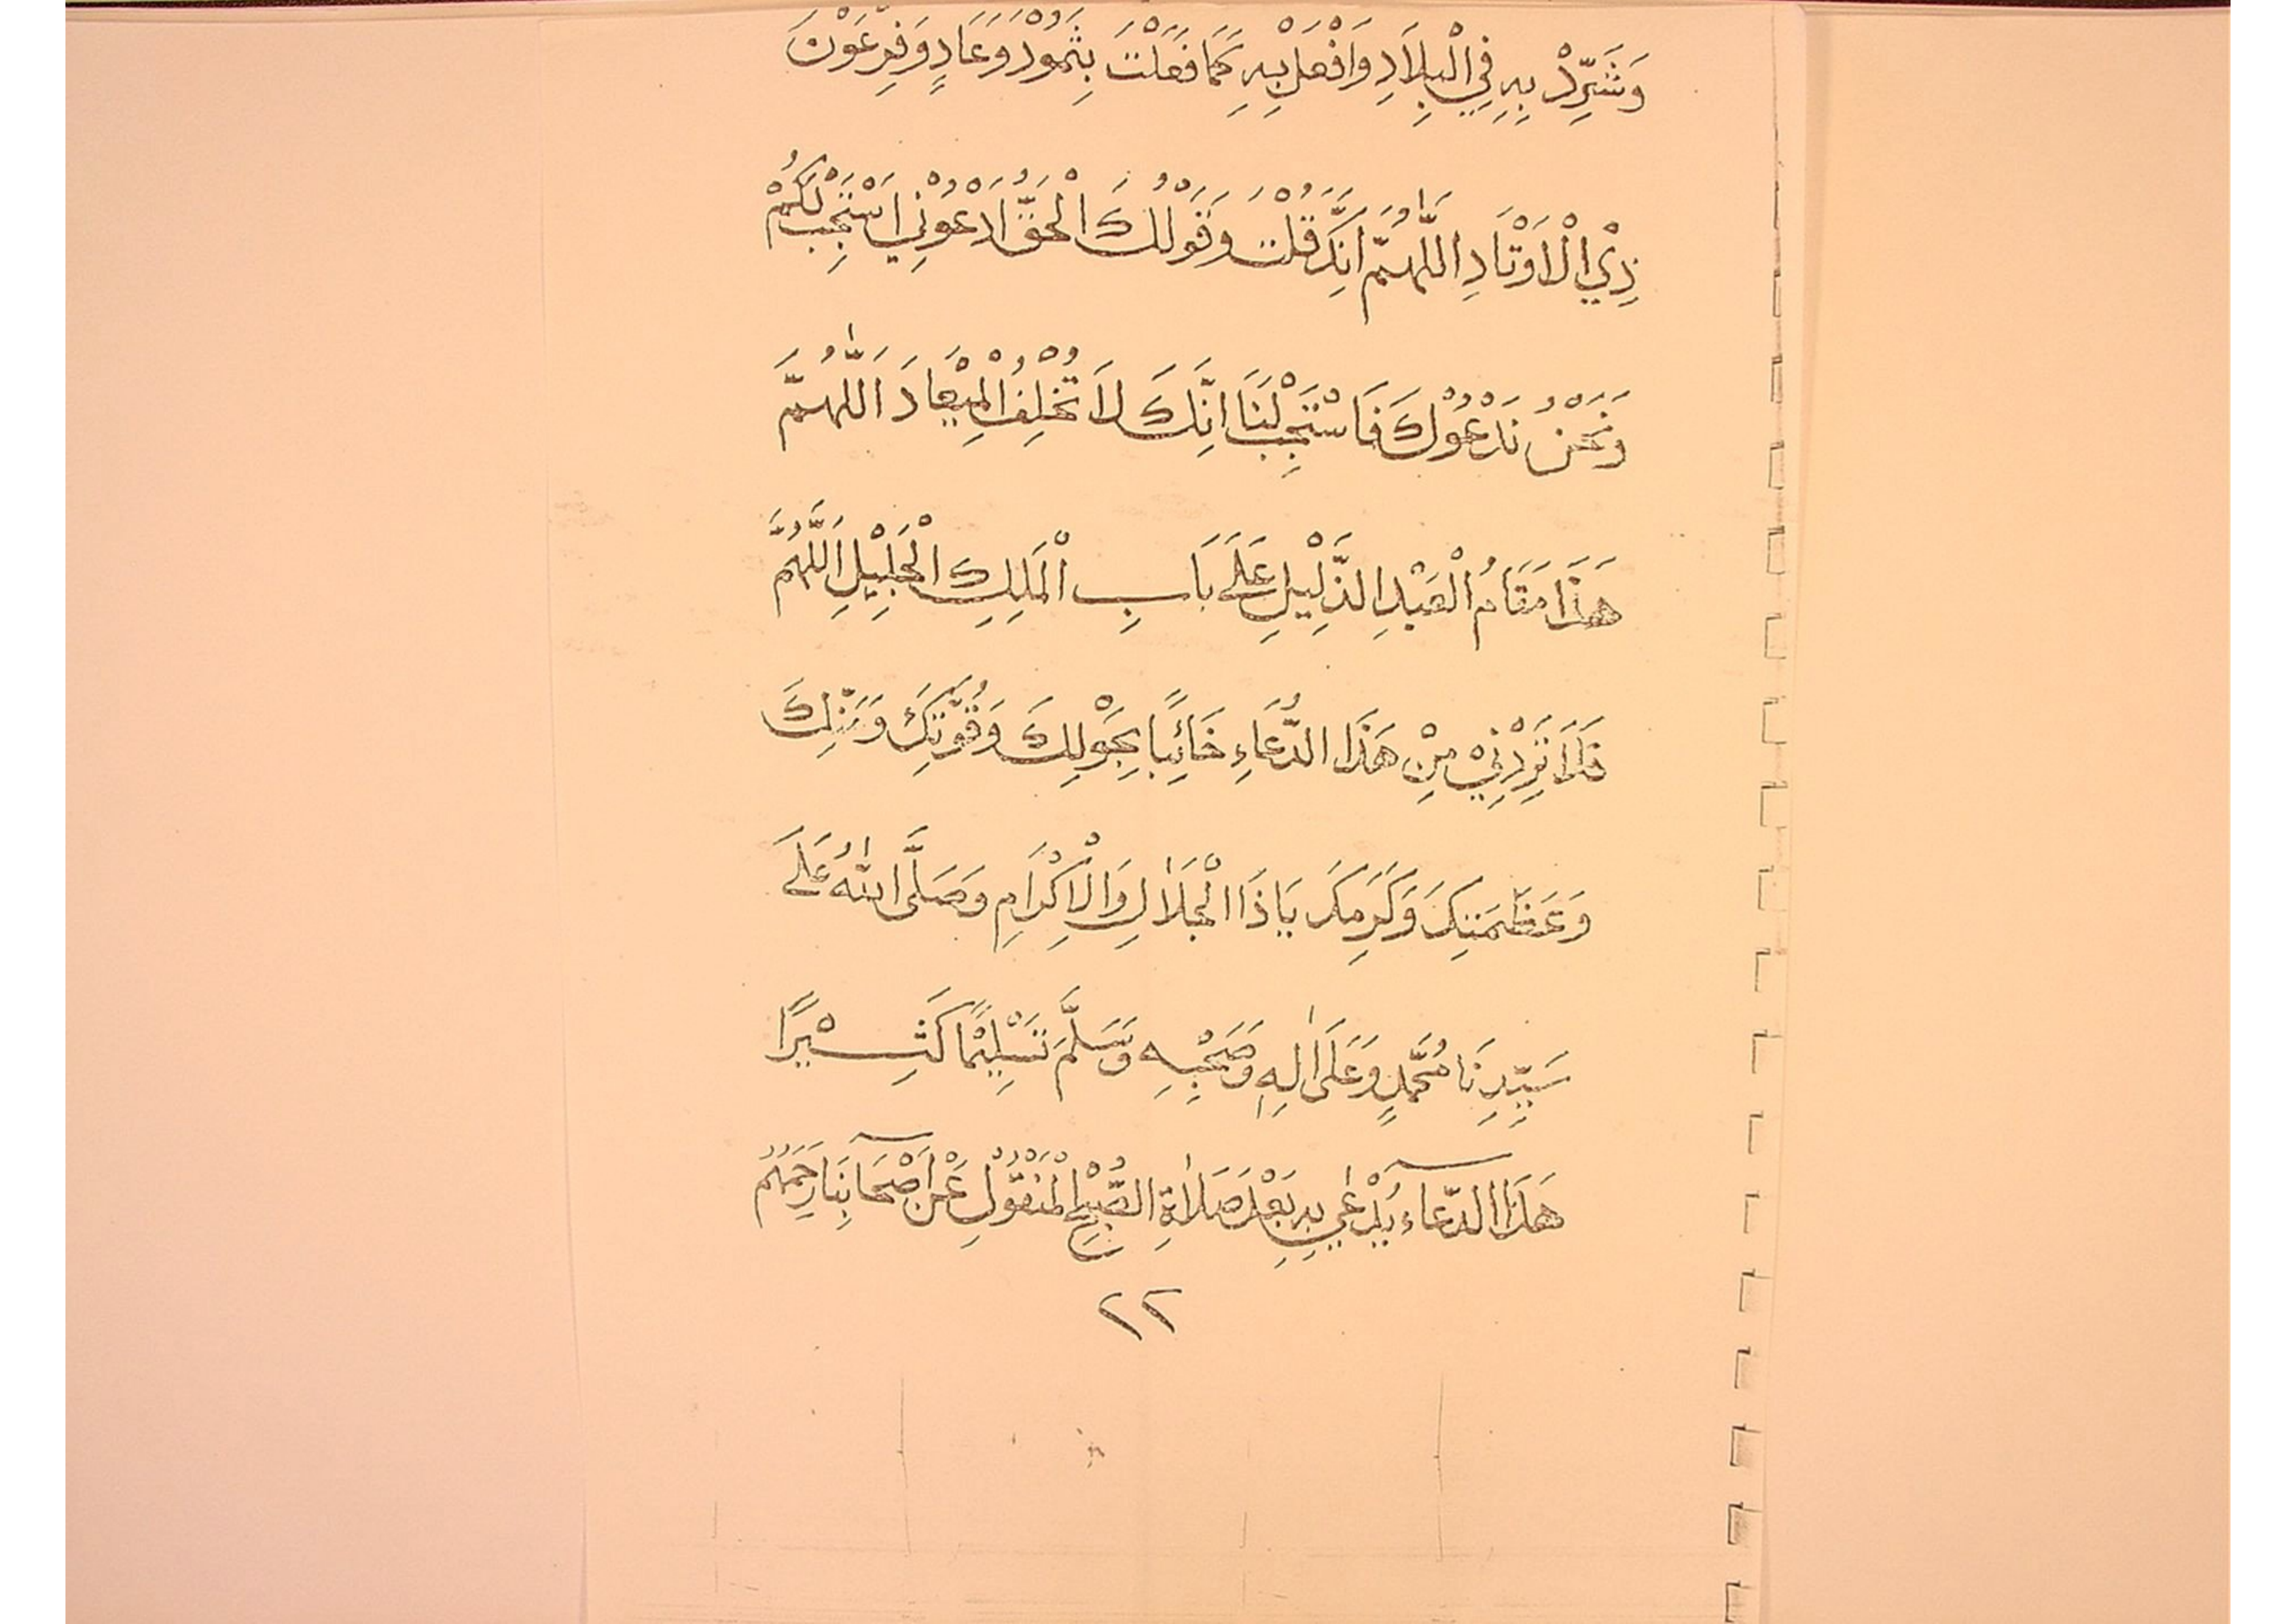 وَشَرِّدْ بِهِ فِي الْبِلاَدِ وَافْعَلْ بِهِ كَمَا فَعَلْتَ بِثَمُوْدَ وَعَادٍ وَفِرْعَوْنَ
ذِيْ الْاَوْتَادِ اللّٰهُمَّ اِنَّكَ قُلْتَ وَقَوْلُكَ الْحَقُّ اَدْعُوْنِيْ اَسْتَجِبْ لَكُمْ
وَنَحْنُ نَدْعُوْكَ فَاسْتَجِبْ لَنَا اِنَّكَ لاَ تُخْلِفُ الْمِيْعَادَ اَللّٰهُمَّ
هَذَا مَقَامُ الْعَبْدِ الذَّلِيْلِ عَلَى بَابِ الْمَلِكِ الْجَلِيْلِ اَللَّهُمَّ
فَلاَ تَرُدَّنِيْ مِنْ هَذَا الدُّعَاءِ خَائِبًا بِحَوْلِكَ وَقُوَّتِكَ وَمَنِّكَ
وَعَظَمَتِكَ وَكَرَمِكَ يَا ذَا الْجَلاَلِ وَالْاِكْرَامِ وَصَلَّى اللّٰهُ عَلَى
سَيِّدِنَا مُحَمَّدٍ وَعَلَى اٰلِهِ وَصَحْبِهِ وَسَلَّمَ تَسْلِيْمًا كَثِيْرًا
هَذَا الدُّعَاء يُدْعٰى بِهِ بَعْدَ صَلاَةِ الصُّبْحِ الْمَنْقُوْلِ عَنْ اَصْحَابِنَا رَحِمَهُمُ
٢٢